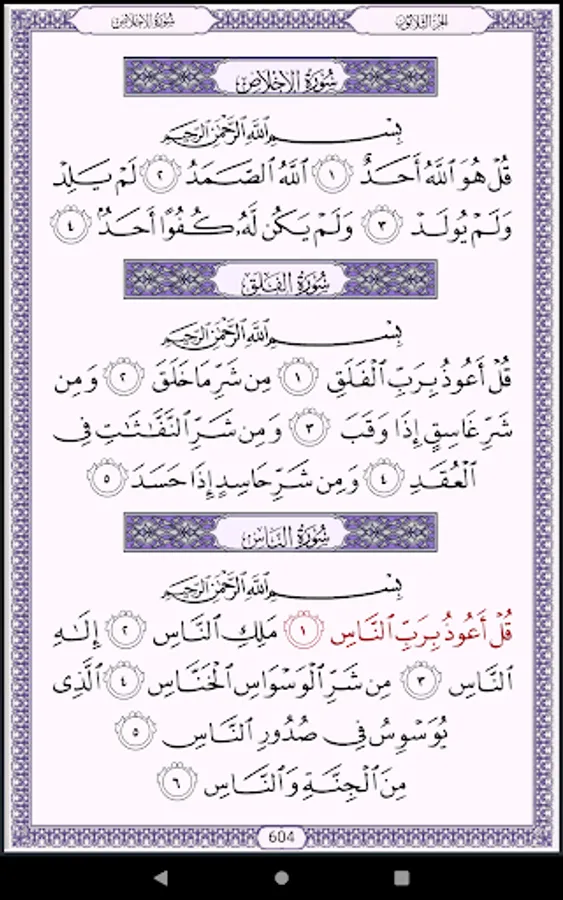 الجزء الثلاثون
سُورَةُ الإخلاص
سُورَةُ الإخلاص
بِسْمِ ٱللَّهِ ٱلرَّحْمَٰنِ ٱلرَّحِيمِ
قُلْ هُوَ ٱللَّهُ أَحَدٌ ١ ٱللَّهُ ٱلصَّمَدُ ٢ لَمْ يَلِدْ
وَلَمْ يُولَدْ ٣ وَلَمْ يَكُن لَّهُۥ كُفُوًا أَحَدٌۢ ٤
سُورَةُ الفَلَق
بِسْمِ ٱللَّهِ ٱلرَّحْمَٰنِ ٱلرَّحِيمِ
قُلْ أَعُوذُ بِرَبِّ ٱلْفَلَقِ ١ مِن شَرِّ مَا خَلَقَ ٢ وَمِن
شَرِّ غَاسِقٍ إِذَا وَقَبَ ٣ وَمِن شَرِّ ٱلنَّفَّٰثَٰتِ فِى
ٱلْعُقَدِ ٤ وَمِن شَرِّ حَاسِدٍ إِذَا حَسَدَ ٥
سُورَةُ النَّاس
بِسْمِ ٱللَّهِ ٱلرَّحْمَٰنِ ٱلرَّحِيمِ
قُلْ أَعُوذُ بِرَبِّ ٱلنَّاسِ ١ مَلِكِ ٱلنَّاسِ ٢ إِلَٰهِ
ٱلنَّاسِ ٣ مِن شَرِّ ٱلْوَسْوَاسِ ٱلْخَنَّاسِ ٤ ٱلَّذِى
يُوَسْوِسُ فِى صُدُورِ ٱلنَّاسِ ٥
مِنَ ٱلْجِنَّةِ وَٱلنَّاسِ ٦
604